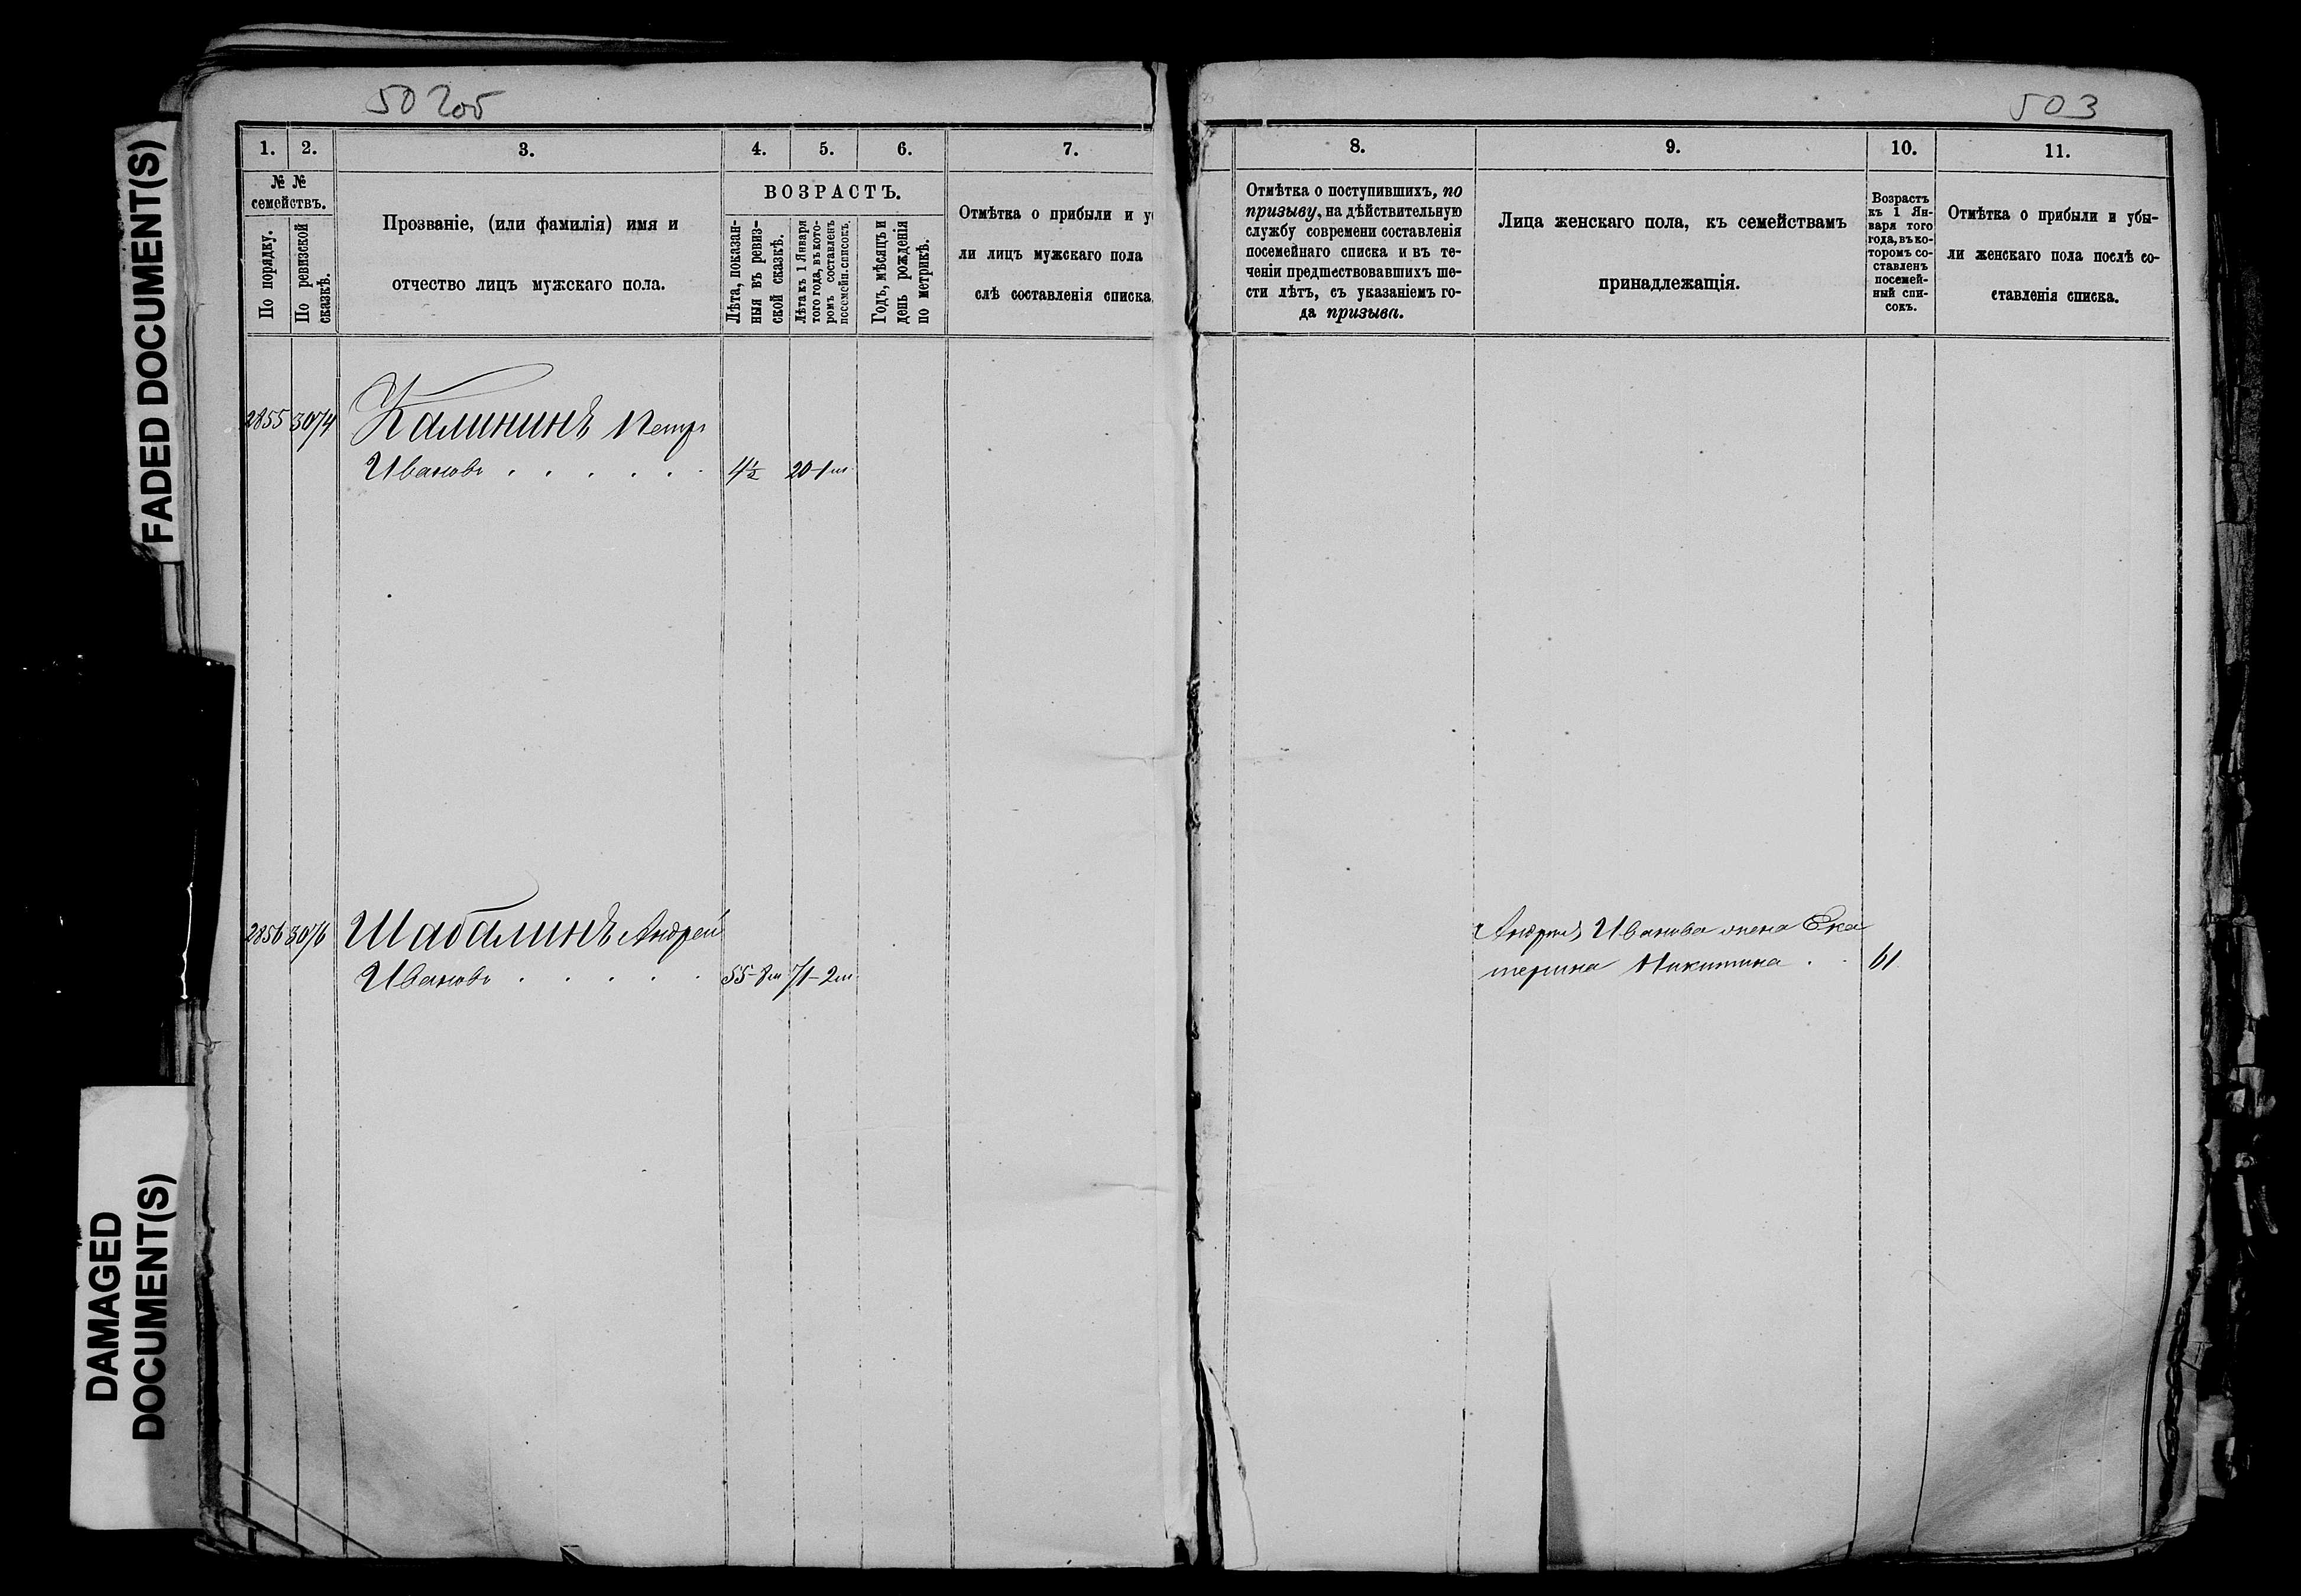 FADED DOCUMENT(S)
DAMAGED
DOCUMENT(S)
502об
503
1. 2. 3. 4. 5. 6. 7.
№ №
семействъ.
По порядку.
По ревизской
сказкѣ.
Прозваніе, (или фамилія) имя и
отчество лицъ мужскаго пола.
ВОЗРАСТЪ.
Лѣта, показан-
ныя въ ревиз-
ской сказкѣ.
Лѣта къ 1 Января
того года, въ кото-
ромъ составленъ
посемейн. списокъ.
Годъ, мѣсяцъ и
день рожденія
по метрикѣ.
Отмѣтка о прибыли и у
ли лицъ мужскаго пола
слѣ составленія списка
2855 3074 Калининъ Петръ
Ивановъ . . . . . . 4½ 20-1 м.
2856 3076 Шабалинъ Андрей
Ивановъ . . . . . 55-8 м 71-2 м
8. 9. 10. 11.
Отмѣтка о поступившихъ, по
призыву, на дѣйствительную
службу современи составленія
посемейнаго списка и въ те-
ченіи предшествовавшихъ ше-
сти лѣтъ, съ указаніемъ го-
да призыва.
Лица женскаго пола, къ семействамъ
принадлежащія.
Возрастъ
къ 1 Ян-
варя того
года, въ ко-
торомъ со-
ставленъ
посемей-
ный спи-
сокъ.
Отмѣтка о прибыли и убы-
ли женскаго пола послѣ со-
ставленія списка.
Андрея Иванова жена Ека
терина Никитина . . 61